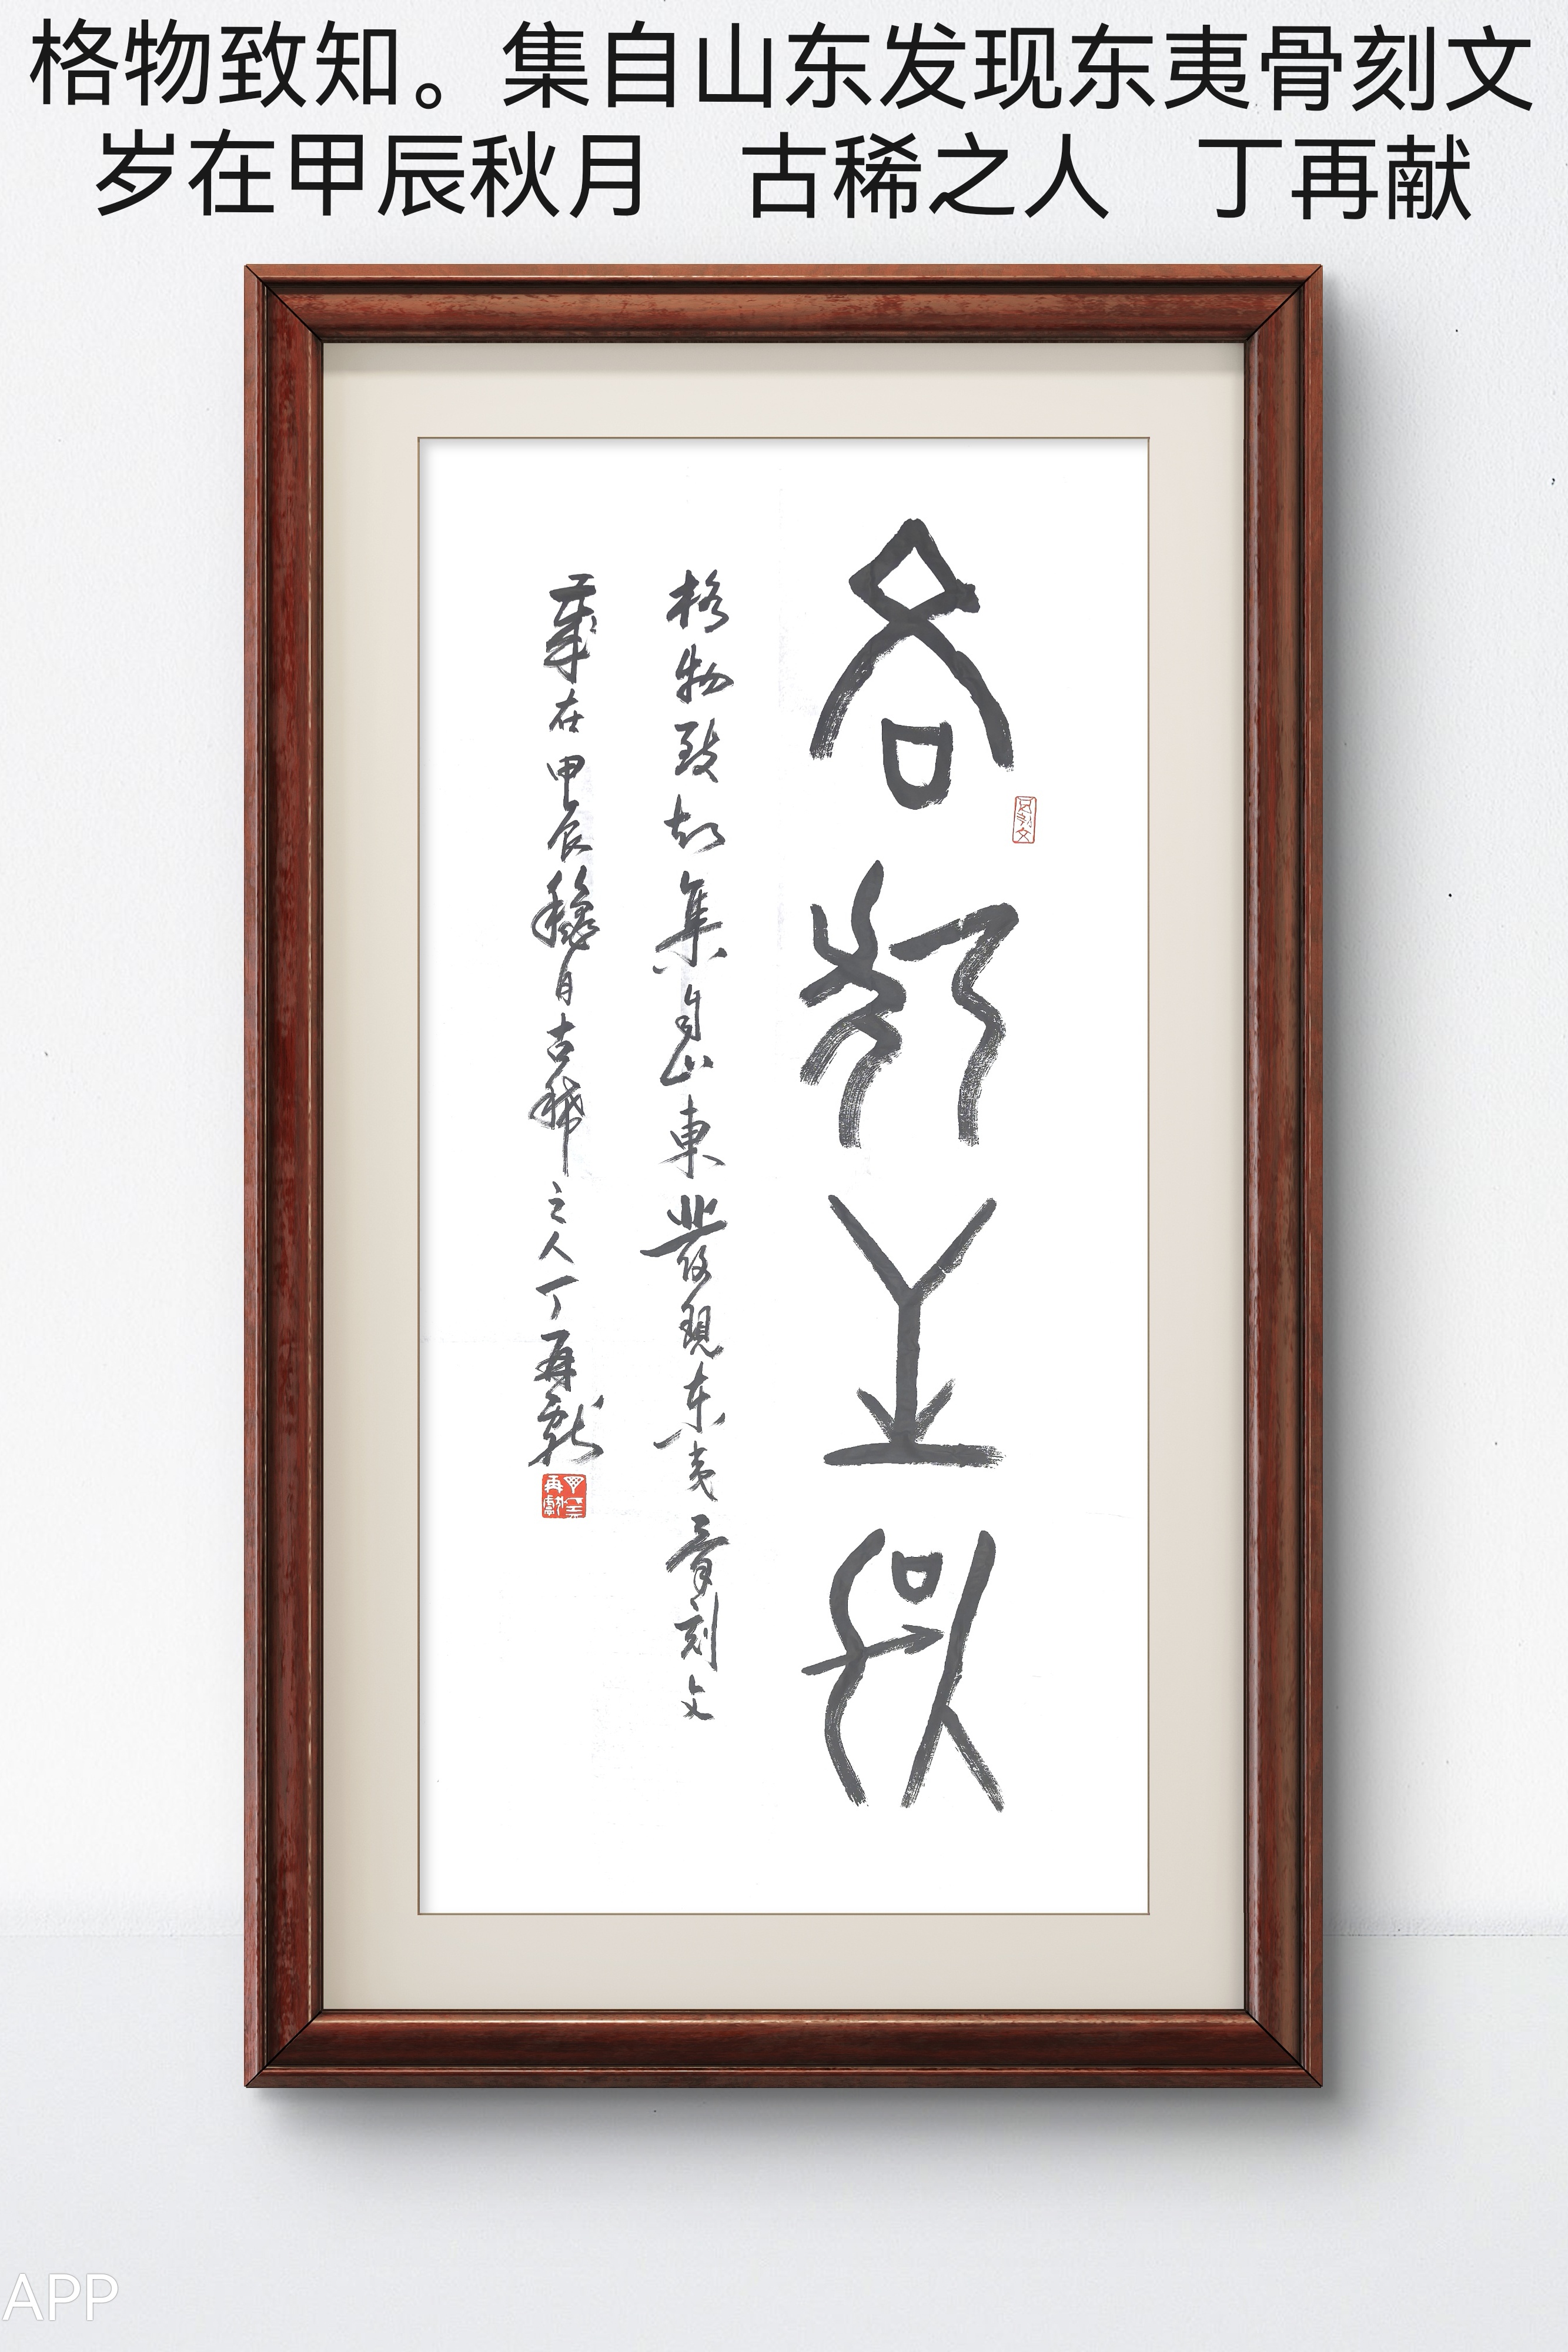 格物致知。集自山东发现东夷骨刻文
岁在甲辰秋月　古稀之人　丁再献
各物至知
格物致知集自山東發現东夷骨刻文
歲在甲辰穐月古稀之人丁再献
APP